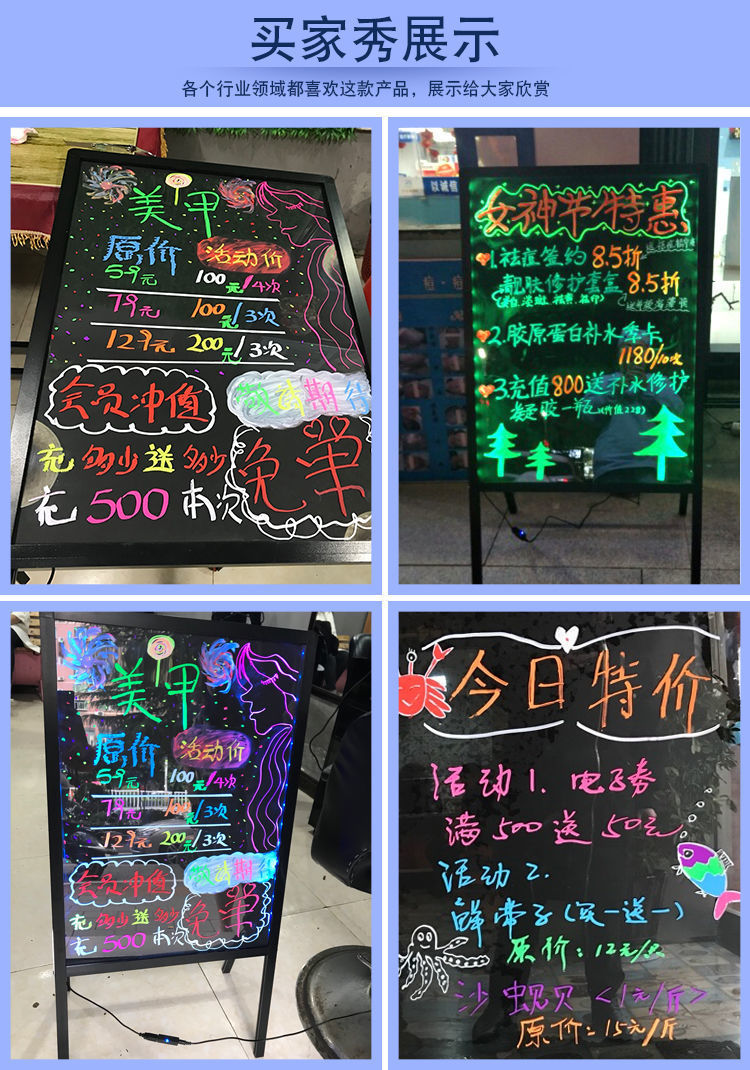 买家秀展示
各个行业领域都喜欢这款产品，展示给大家欣赏
美甲
原价 活动价
59元 100元/4次
79元 100元/3次
129元 200元/3次
会员冲值
活动期待
充多少送多少
充500本次
免单
以诚信
女神节特惠
1.祛痘签约8.5折
靓肤修护套盒8.5折
2.胶原蛋白补水季卡
1180/10次
3.充值800送补水修护
凝胶一瓶(价值228)
美甲
原价 活动价
59元 100元/4次
79元 100元/3次
129元 200元/3次
会员冲值
活动期待
充多少送多少
充500本次
免单
今日特价
活动1.电子券
满500送50元
活动2.
鲜带子(买一送一)
原价:12元/只
沙蚬贝<1元/斤>
原价:15元/斤